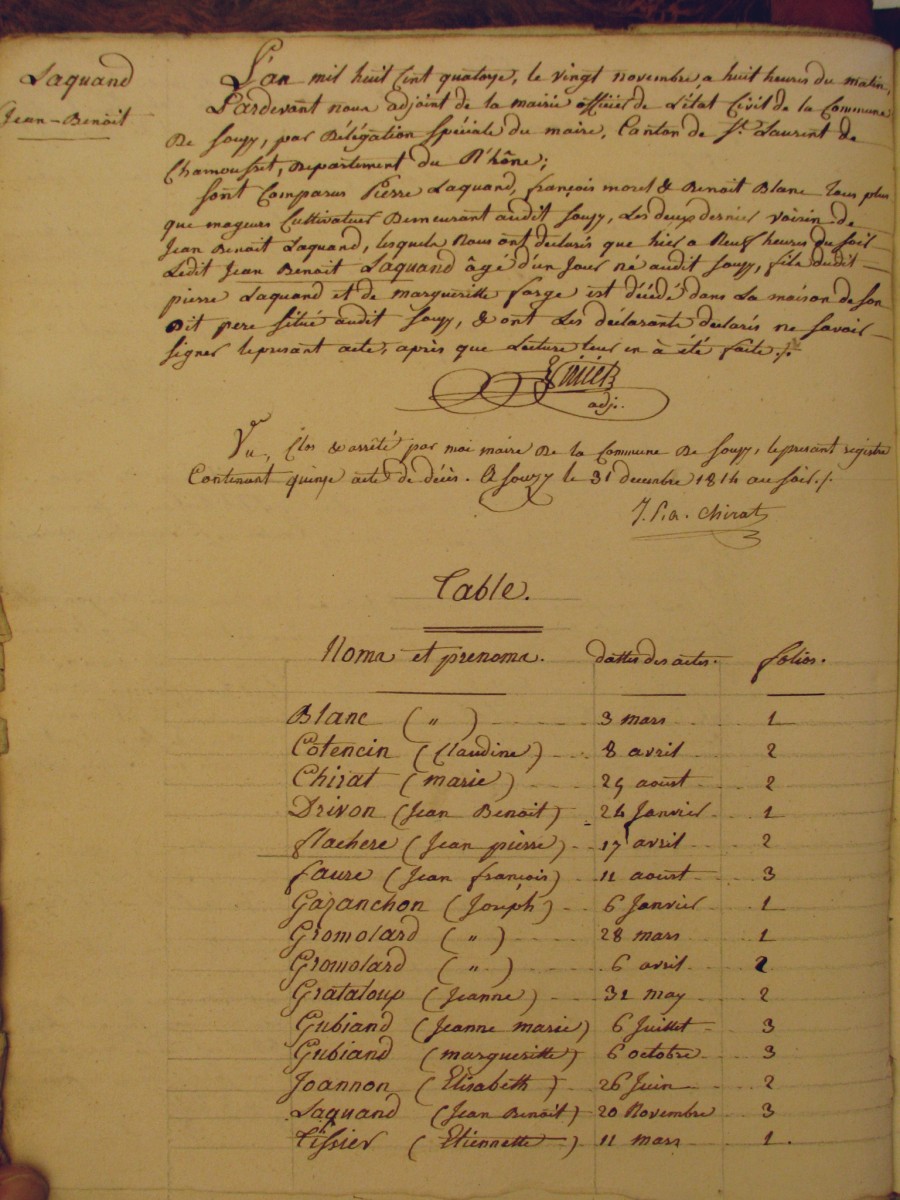 Laquand
Jean-Benoit
L'an mil huit Cent quatorze, le vingt novembre a huit heures du matin,
Pardevant nous adjoint de la mairie officier de L'état Civil de la Commune
De Souzy, par Délégation Spéciale du maire, Canton de St. Laurent de
Chamousset, Departement du Rhône;
Sont Comparus Pierre Laquand, françois morel & Benoit Blanc tous plus
que mageurs Cultivateur Demeurant audit Souzy, Les deux dernier voisin de
Jean Benoit Laquand, lesquels Nous ont declarés que hier a Neuf heures du soir
Ledit Jean Benoit Laquand âgé d'un Jour né audit Souzy, fils dudit
pierre Laquand et de margueritte farge est décédé dans La maison de son
Dit pere situé audit Souzy, & ont Les déclarants declarés ne savoir
signer le presant acte, après que Lecture leur en à été faite ./.
adj.
Vu, Clos & arrêté par moi maire De la Commune De Souzy, le presant registre
Contenant quinze acte de décès. A Souzy le 31 decembre 1814 au soir ./.
Chirat
Table.
Noms et prenoms. dattes des actes. folios.
Blanc ( " ) 3 mars 1
Cotencin (Claudine) 8 avril 2
Chirat (marie) 29 aoust 2
Drivon (Jean Benoit) 26 Janvier 1
flachere (Jean pierre) 17 avril 2
faure (Jean françois) 11 aoust 3
Gazanchon (Joseph) 6 Janvier 1
Gromolard ( " ) 28 mars 1
Gromolard ( " ) 6 avril 2
Grataloup (Jeanne) 31 may 2
Gubiand (Jeanne marie) 6 Juillet 3
Gubiand (margueritte) 6 octobre 3
Joannon (Elisabeth) 26 Juin 2
Laquand (Jean Benoit) 20 Novembre 3
Tissier (Etiennette) 11 mars 1.